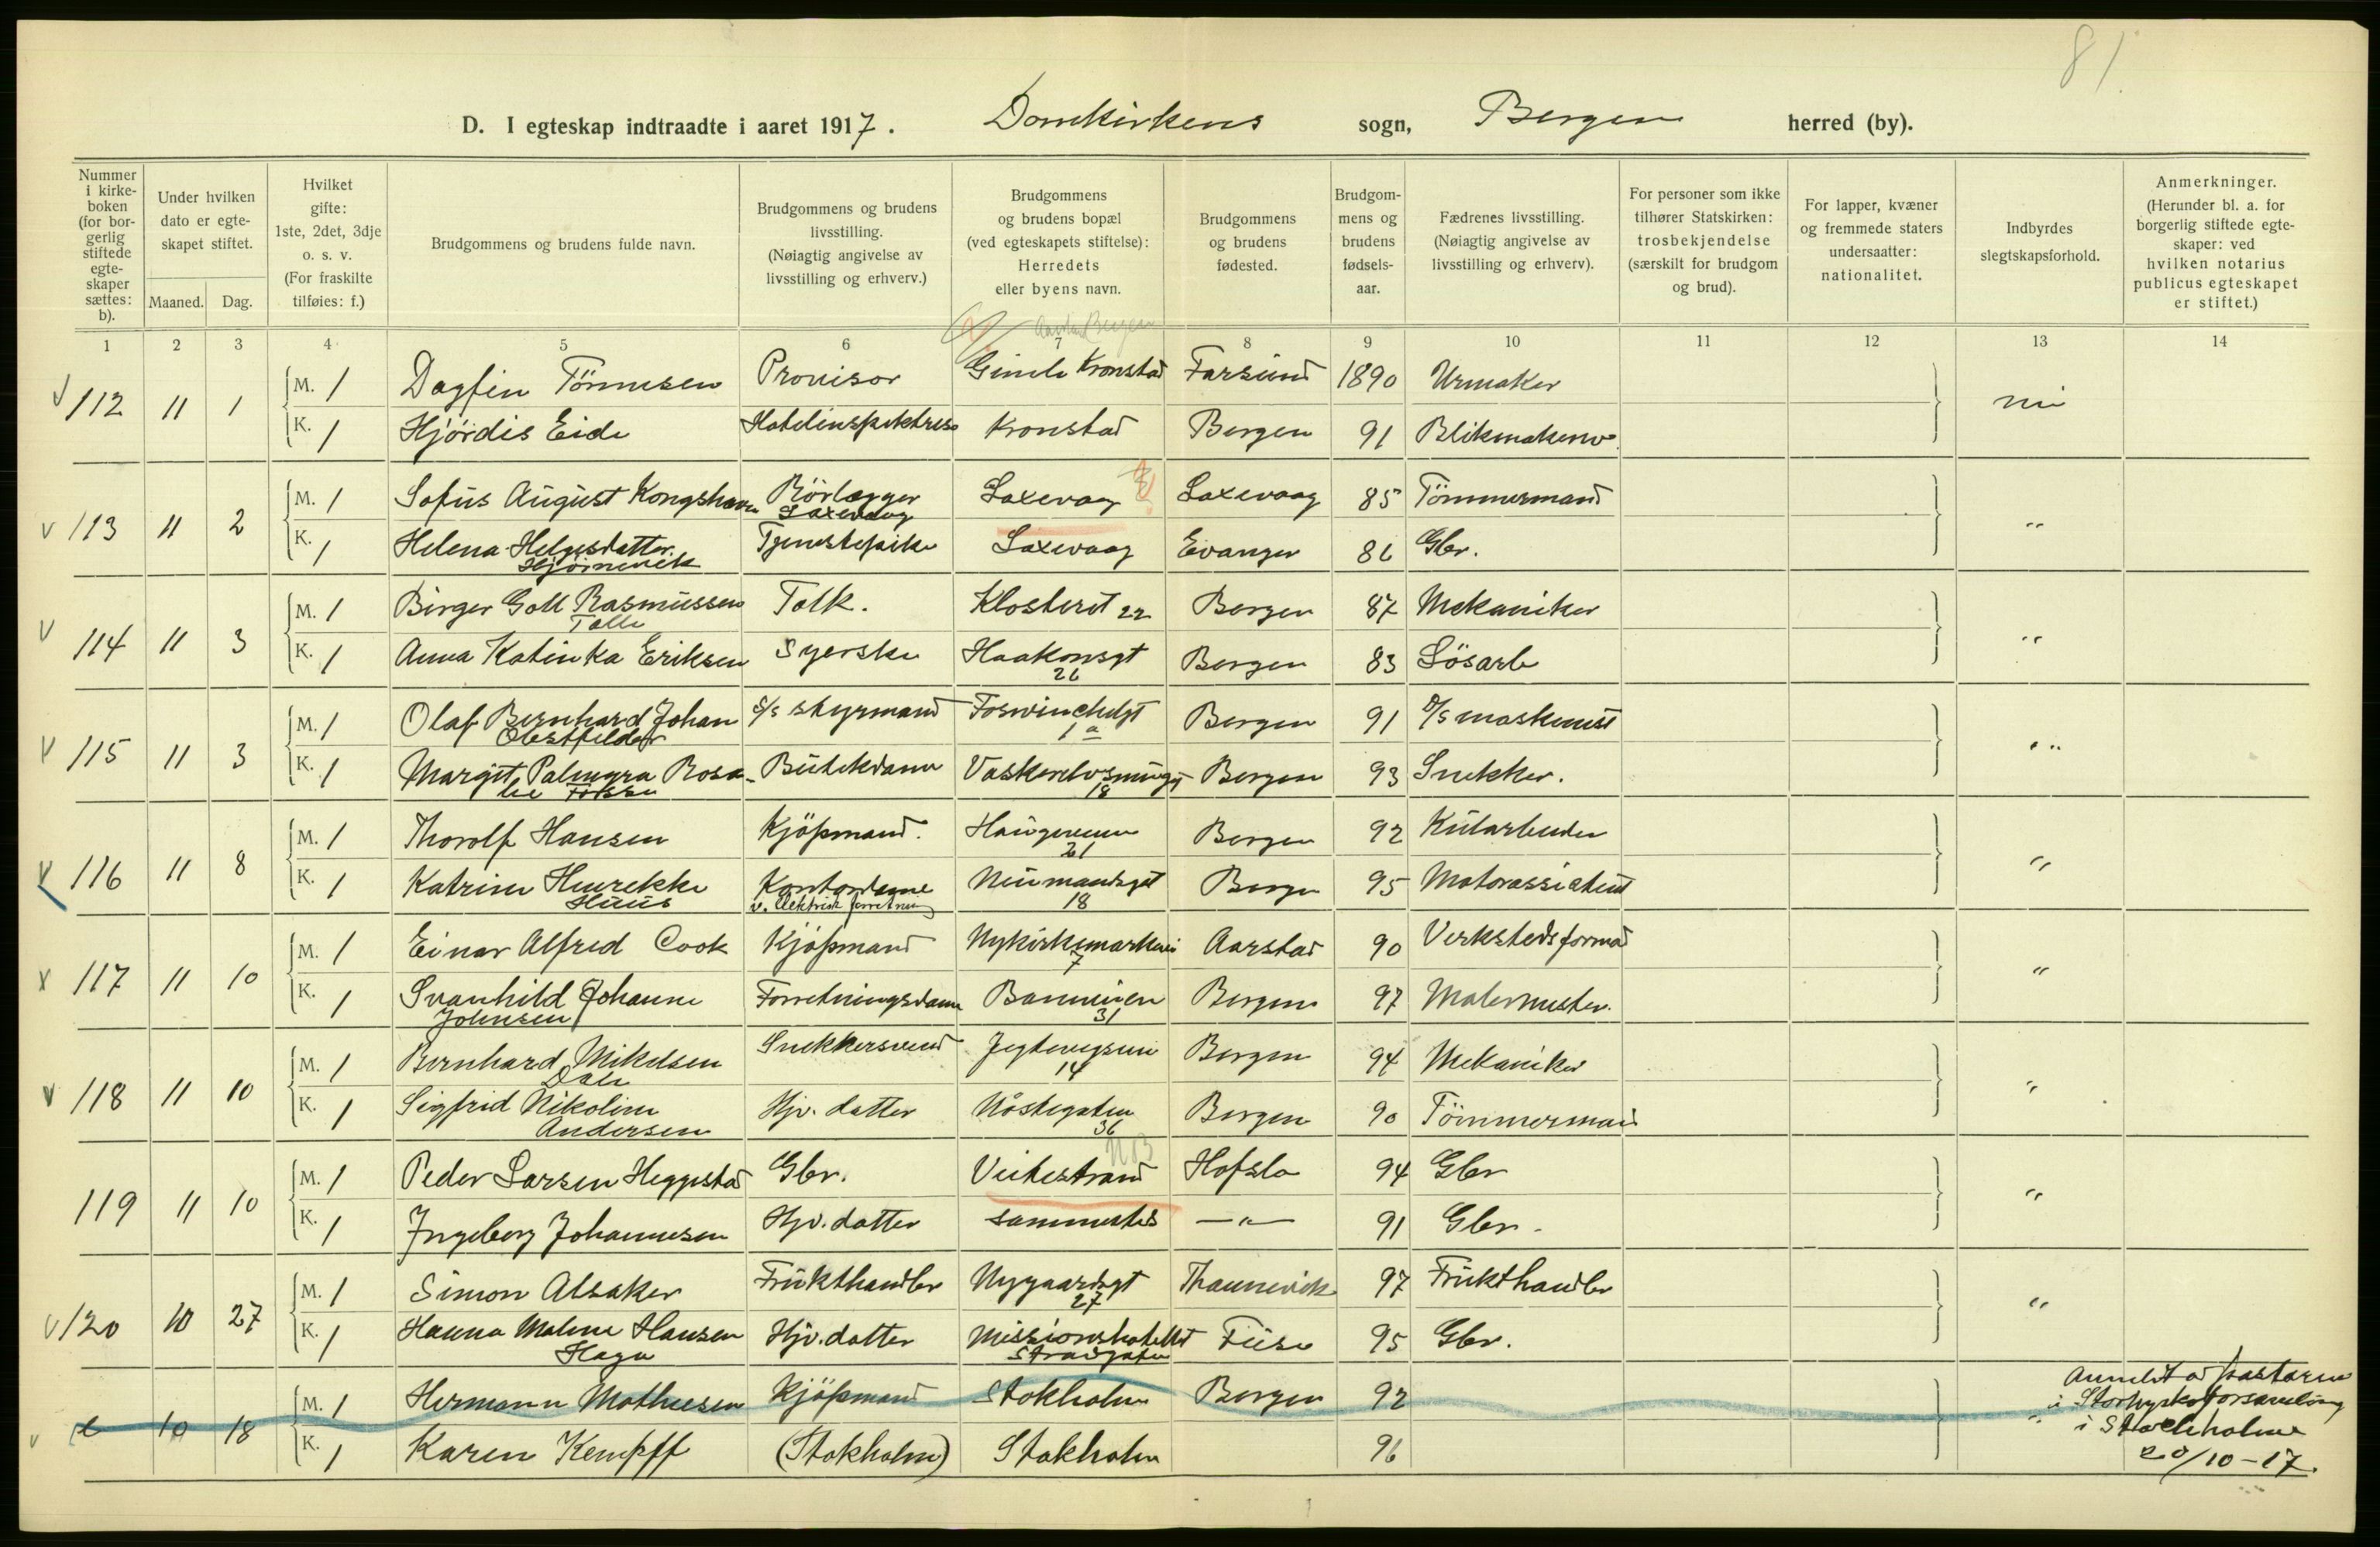 81
D. I egteskap indtraadte i aaret 1917. Domkirkens sogn, Bergen herred (by).
Nummer i kirkeboken (for borgerlig stiftede egteskaper sættes: b).
Under hvilken dato er egteskapet stiftet.
Maaned. Dag.
Hvilket gifte: 1ste, 2det, 3dje o. s. v. (For fraskilte tilføies: f.)
Brudgommens og brudens fulde navn.
Brudgommens og brudens livsstilling. (Nøiagtig angivelse av livsstilling og erhverv.)
Brudgommens og brudens bopæl (ved egteskapets stiftelse): Herredets eller byens navn.
Brudgommens og brudens fødested.
Brudgommens og brudens fødselsaar.
Fædrenes livsstilling. (Nøiagtig angivelse av livsstilling og erhverv).
For personer som ikke tilhører Statskirken: trosbekjendelse (særskilt for brudgom og brud).
For lapper, kvæner og fremmede staters undersaatter: nationalitet.
Indbyrdes slegtskapsforhold.
Anmerkninger. (Herunder bl. a. for borgerlig stiftede egteskaper: ved hvilken notarius publicus egteskapet er stiftet.)
1 2 3 4 5 6 7 8 9 10 11 12 13 14
V 112 11 1 M. 1 Dagfin Tönnesen Provisor Gimle Kronstad Farsund 1890 Urmaker nei
K. 1 Hjørdis Eide Hotelinspektrise Kronstad Bergen 91 Blikmakersv.
v 113 11 2 M. 1 Sofus August Kongshavn Rörlægger Laxevaag Laxevaag Laxevaag 85 Tömmermand "
K. 1 Helena Helgesdatter Hjörnevik Tjenestepike Laxevaag Evanger 86 Gbr.
V 114 11 3 M. 1 Birger Goll Rasmussen Tolk. Klosteret 22 Bergen 87 Mekaniker "
K. 1 Anna Katinka Eriksen Syerske Haakonsgt 26 Bergen 83 Lösarb
V 115 11 3 M. 1 Olaf Bernhard Johan Obstfelder S/s styrmand Foswinckelgt 1 a Bergen 91 D/s maskinist "
K. 1 Margit Palmyra Rosalie Fosse Butikdame 18 Bergen 93 Snekker.
V 116 11 8 M. 1 Thorolf Hansen Kjöpmand. Haugeveien 21 Bergen 92 Kularbeider "
K. 1 Katrine Henrikke Huus Kontordame v. Elektrisk forretning Neumandsgt 18 Bergen 95 Motorassistent
x 117 11 10 M. 1 Einar Alfred Cook Kjöpmand Nykirkemarkevei 7 Aarstad 90 Verkstedsformad "
K. 1 Svanhild Johanne Johnsen Forretningsdame 31 Bergen 97 Malermester.
v 118 11 10 M. 1 Bernhard Mikelsen Dale Snekkersvend 14 Bergen 94 Mekaniker "
K. 1 Sigfrid Nikoline Andersen Hjv. datter Nøstegaten 36 Bergen 90 Tömmermand
119 11 10 M. 1 Peder Larsen Heggestad Gbr. NB Veikestrand Hafslo 94 Gbr "
K. 1 Ingeborg Johannesen Hjv. datter sammesteds — " — 91 Gbr.
v 120 10 27 M. 1 Simon Alsaker Frukthandler Nygaardsgt 27 Thaunevik 97 Frukthandler "
K. 1 Hanna Malene Hansen Haga Hjv. datter Missionshotellet Strandgaten Fuse 95 Gbr.
v 10 18 M. 1 Hermann Mathiesen Kjöpmand Stokholm Bergen 92 " Anmeldt av pastoren i Storkyrkoforsamling i Stockholm 20/10-17.
K. 1 Karen Kempff (Stokholm) Stokholm 96